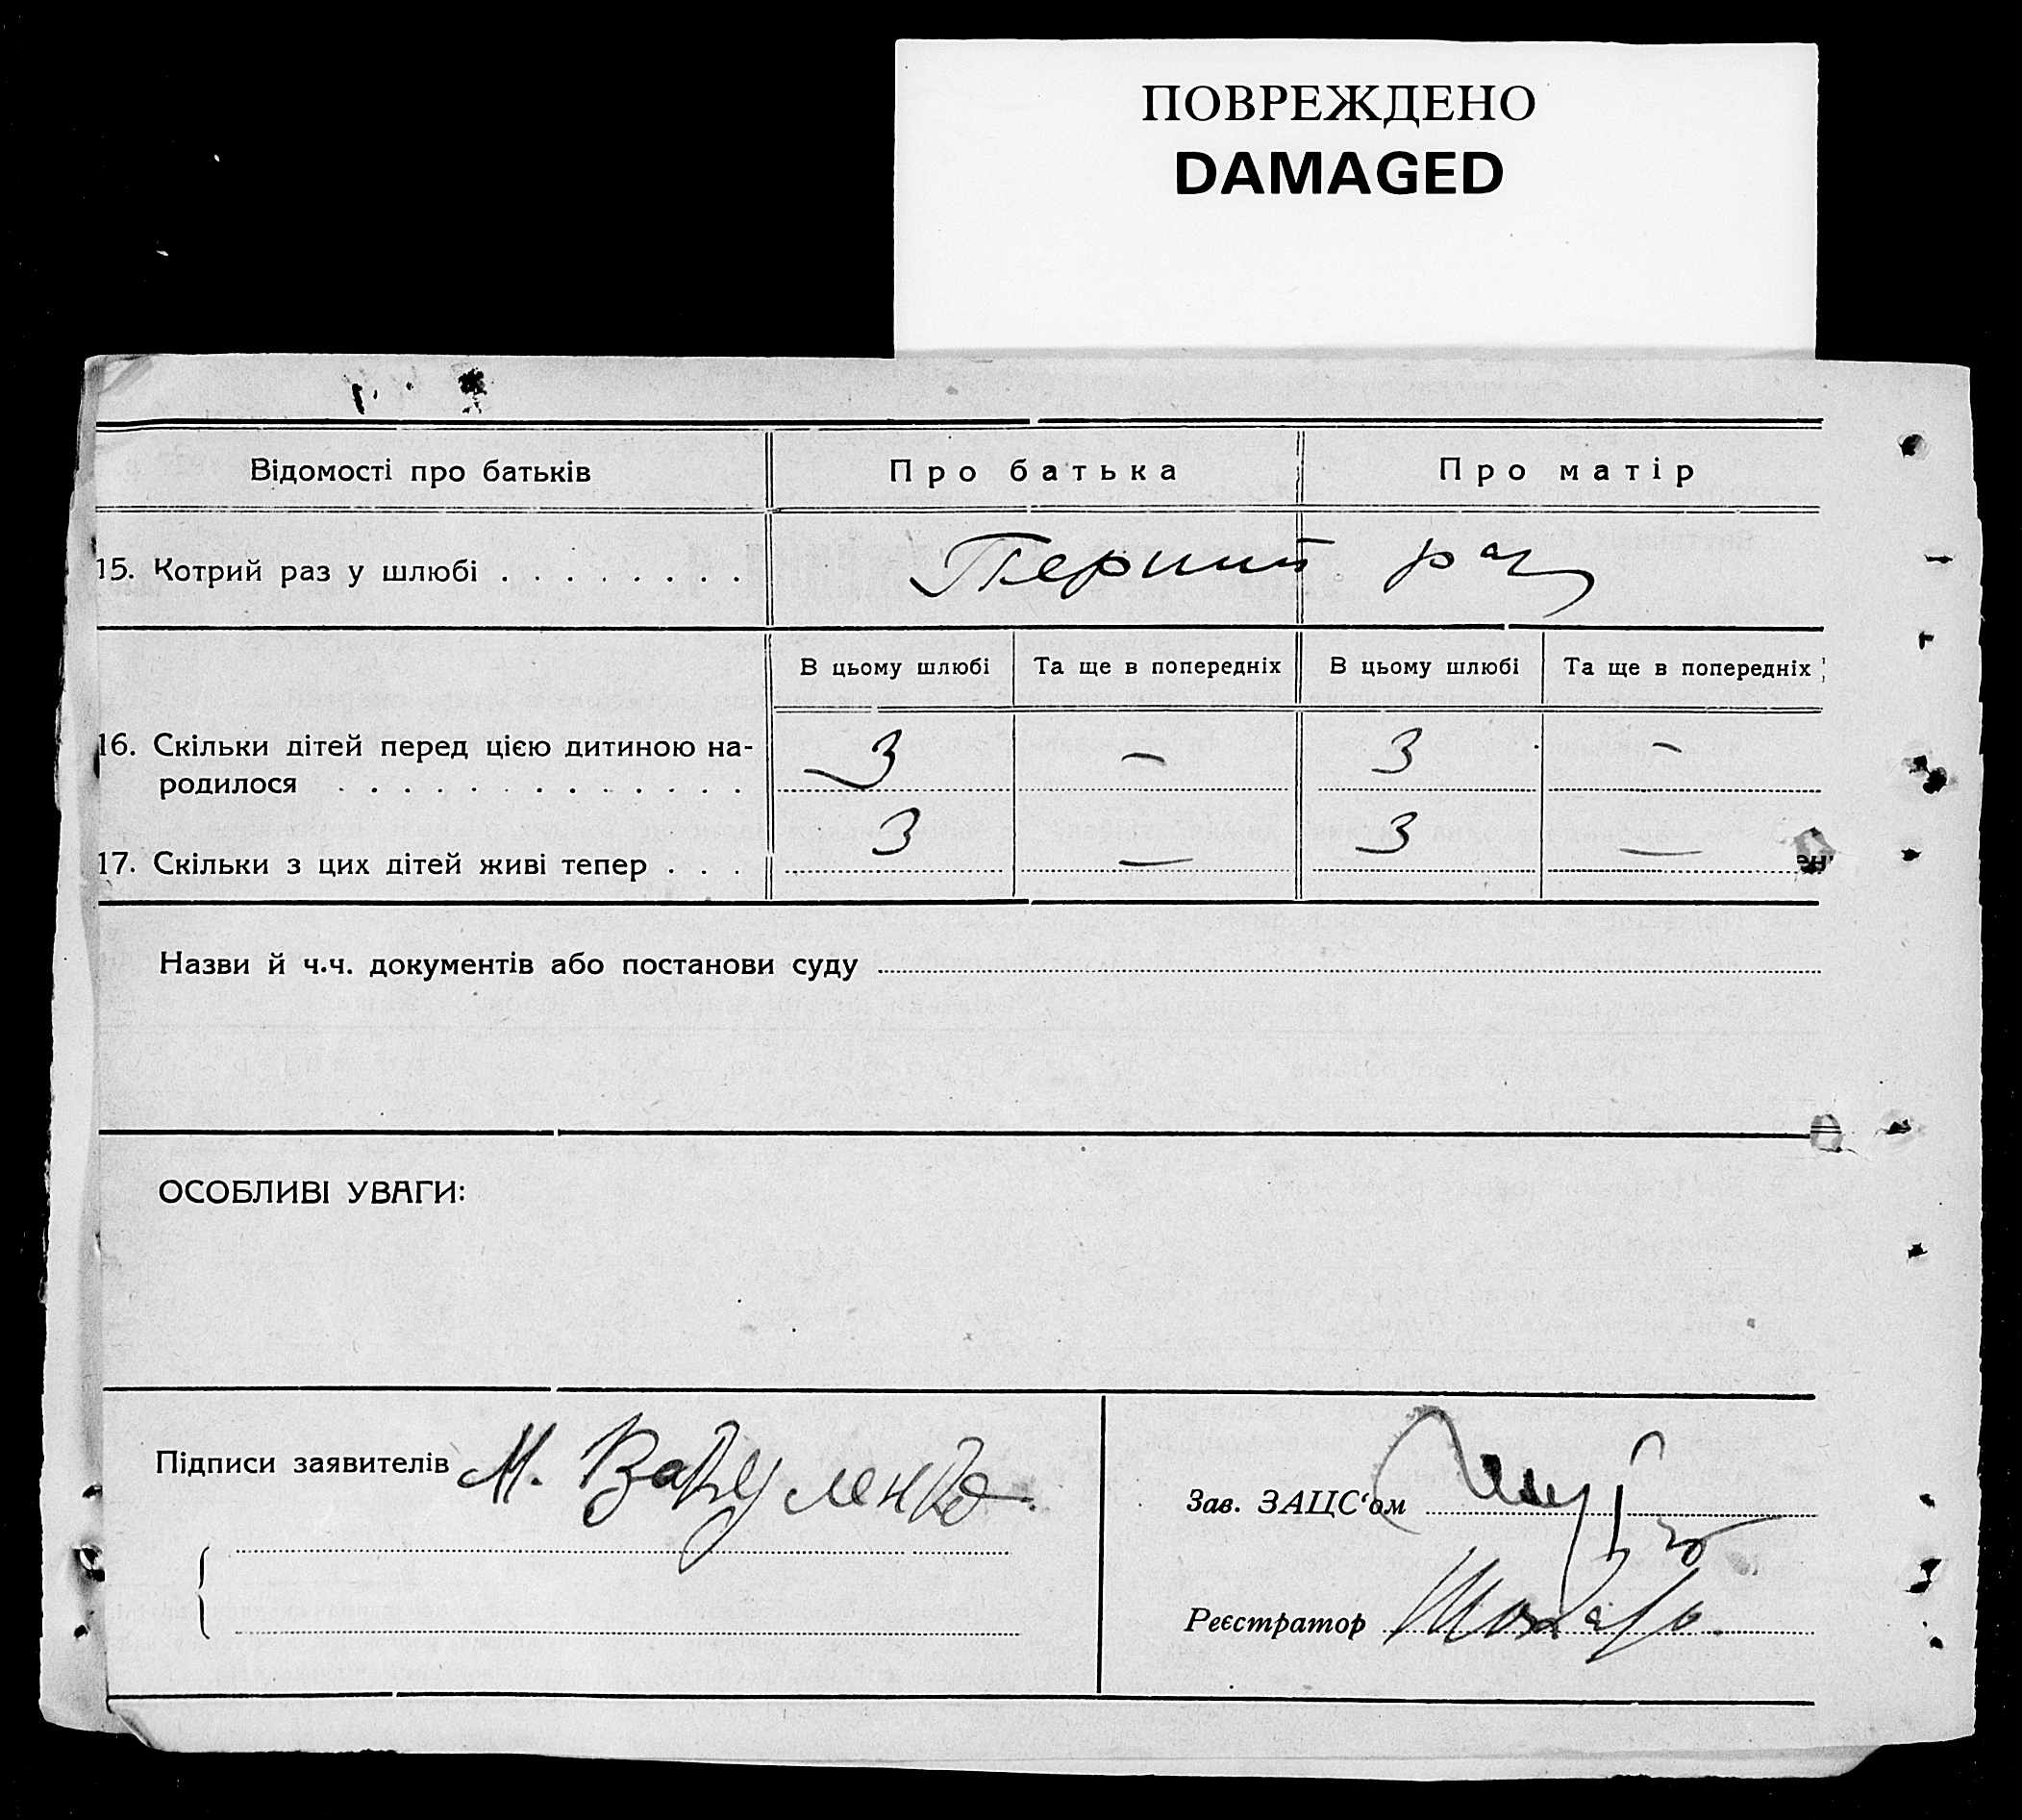 ПОВРЕЖДЕНО
DAMAGED
Відомості про батьків Про батька Про матір
15. Котрий раз у шлюбі . . . . . . . . Перший раз
В цьому шлюбі Та ще в попередніх В цьому шлюбі Та ще в попередніх
16. Скільки дітей перед цією дитиною на-
родилося . . . . . . . . . . . . . 3 – 3 –
17. Скільки з цих дітей живі тепер . . . 3 — 3 —
Назви й ч.ч. документів або постанови суду
ОСОБЛИВІ УВАГИ:
Підписи заявителів М. Вакуленко
Зав. ЗАЦС‘ом
Реєстратор